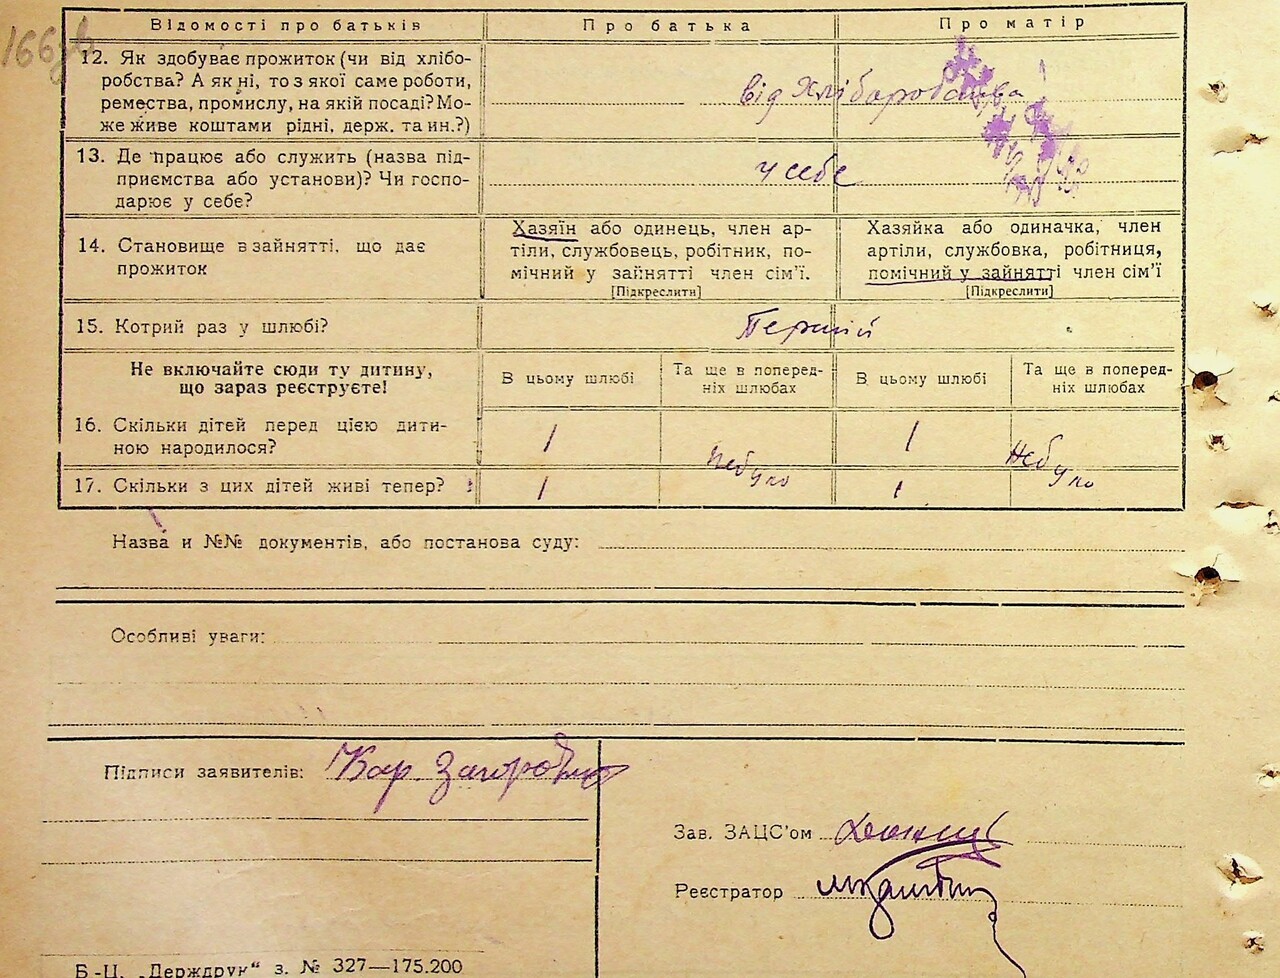 166зв
Відомості про батьків Про батька Про матір
12. Як здобуває прожиток (чи від хлібо-
робства? А як ні, то з якої саме роботи,
ремества, промислу, на якій посаді? Мо-
же живе коштами рідні, держ. та ин.?)
від Хліборобства
13. Де працює або служить (назва під-
приємства або установи)? Чи госпо-
дарює у себе?
у себе
14. Становище в зайнятті, що дає
прожиток
Хазяїн або одинець, член ар-
тіли, службовець, робітник, по-
мічний у зайнятті член сім'ї.
[Підкреслити]
Хазяйка або одиначка, член
артіли, службовка, робітниця,
помічний у зайнятті член сім'ї
[Підкреслити]
15. Котрий раз у шлюбі? Перший
Не включайте сюди ту дитину,
що зараз реєструєте!
В цьому шлюбі
Та ще в поперед-
ніх шлюбах
В цьому шлюбі
Та ще в поперед-
ніх шлюбах
16. Скільки дітей перед цією дити-
ною народилося?
1 Небуло 1 Небуло
17. Скільки з цих дітей живі тепер? 1 1
Назва и №№ документів, або постанова суду:
Особливі уваги:
Підписи заявителів: Кар.
Зав. ЗАЦС'ом
Реєстратор
Б-Ц. „Держдрук“ з. № 327—175.200